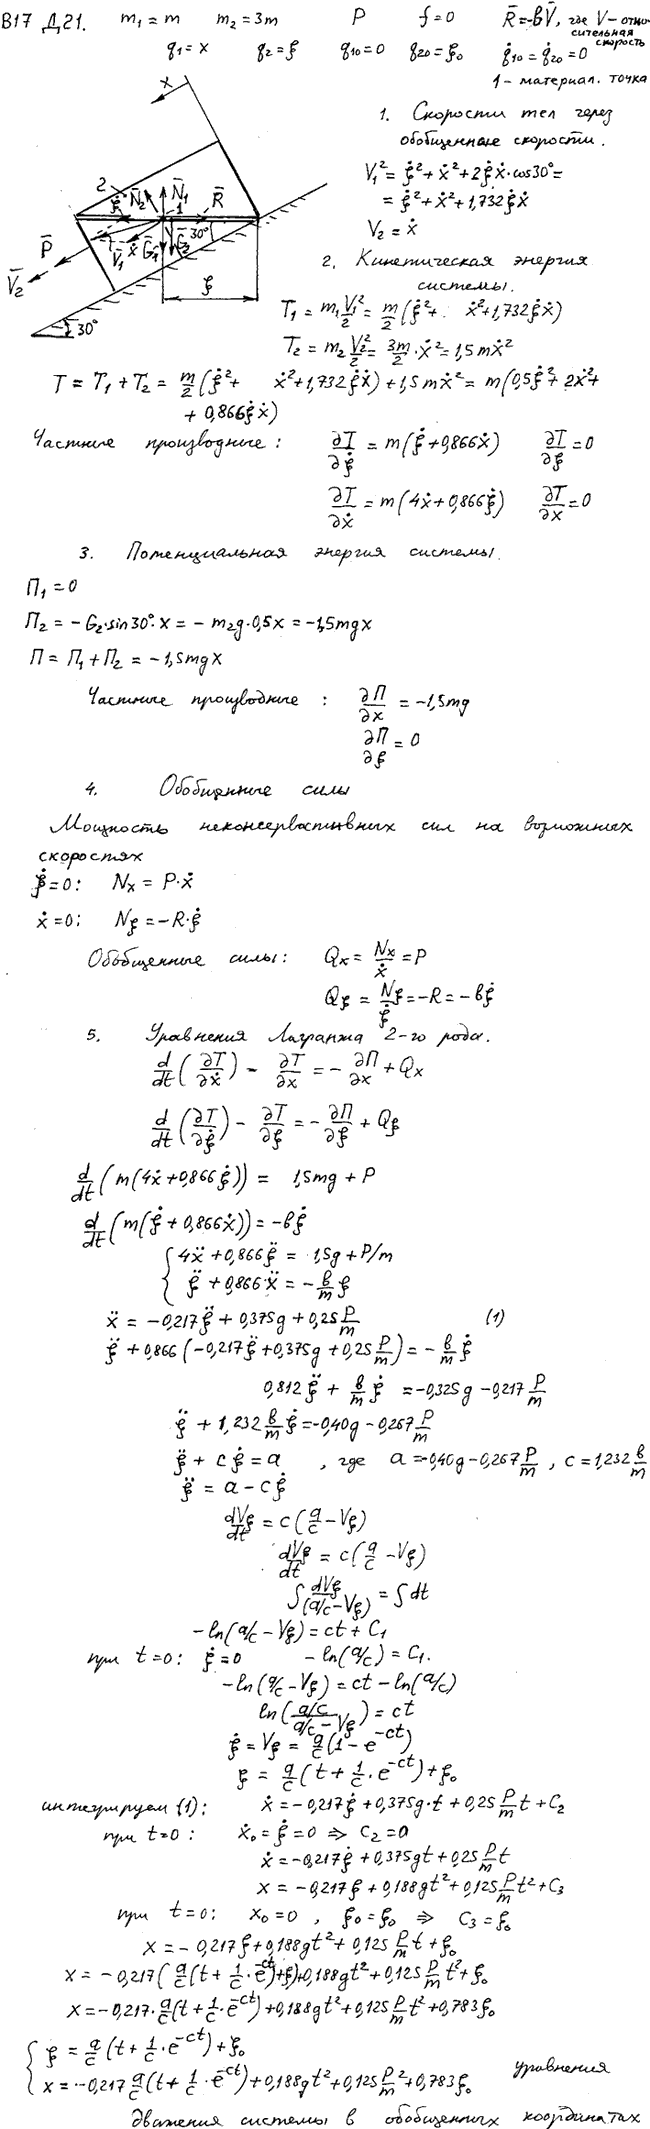 В17 Д21. m₁ = m m₂ = 3m P f = 0 R̄ = -вV̄, где V - относительная скорость
q₁ = x q₂ = ξ q₁₀ = 0 q₂₀ = ξ₀ q̇₁₀ = q̇₂₀ = 0
1 - материал. точка
x
2 ξ̇ N̄₂ N̄₁ R̄
1
P̄ V̄₁ ẋ Ḡ₁ Ḡ₂ 30°
V̄₂
ξ
30°
1. Скорости тел через
обобщенные скорости.
V₁² = ξ̇² + ẋ² + 2ξ̇ẋ·cos30° =
= ξ̇² + ẋ² + 1,732ξ̇ẋ
V₂ = ẋ
2. Кинетическая энергия
системы.
T₁ = m₁V₁²/2 = m/2 (ξ̇² + ẋ² + 1,732ξ̇ẋ)
T₂ = m₂V₂²/2 = 3m/2 · ẋ² = 1,5mẋ²
T = T₁ + T₂ = m/2 (ξ̇² + ẋ² + 1,732ξ̇ẋ) + 1,5mẋ² = m(0,5ξ̇² + 2ẋ² +
+ 0,866ξ̇ẋ)
Частные производные: ∂T/∂ξ̇ = m(ξ̇ + 0,866ẋ) ∂T/∂ξ = 0
∂T/∂ẋ = m(4ẋ + 0,866ξ̇) ∂T/∂x = 0
3. Потенциальная энергия системы.
П₁ = 0
П₂ = -G₂·sin30°·x = -m₂g·0,5x = -1,5mgx
П = П₁ + П₂ = -1,5mgx
Частные производные: ∂П/∂x = -1,5mg
∂П/∂ξ = 0
4. Обобщенные силы
Мощность неконсервативных сил на возможных
скоростях
ξ̇ = 0: Nx = P·ẋ
ẋ = 0: Nξ = -R·ξ̇
Обобщенные силы: Qx = Nx/ẋ = P
Qξ = Nξ/ξ̇ = -R = -вξ̇
5. Уравнения Лагранжа 2-го рода.
d/dt (∂T/∂ẋ) - ∂T/∂x = -∂П/∂x + Qx
d/dt (∂T/∂ξ̇) - ∂T/∂ξ = -∂П/∂ξ + Qξ
d/dt (m(4ẋ + 0,866ξ̇)) = 1,5mg + P
d/dt (m(ξ̇ + 0,866ẋ)) = -вξ̇
{ 4ẍ + 0,866ξ̈ = 1,5g + P/m
ξ̈ + 0,866ẍ = -в/m ξ̇
ẍ = -0,217ξ̈ + 0,375g + 0,25 P/m (1)
ξ̈ + 0,866(-0,217ξ̈ + 0,375g + 0,25 P/m) = -в/m ξ̇
0,812ξ̈ + в/m ξ̇ = -0,325g - 0,217 P/m
ξ̈ + 1,232 в/m ξ̇ = -0,40g - 0,267 P/m
ξ̈ + cξ̇ = a , где a = -0,40g - 0,267 P/m , c = 1,232 в/m
ξ̈ = a - cξ̇
dVξ/dt = c(a/c - Vξ)
dVξ/dt = c(a/c - Vξ)
∫ dVξ/(a/c - Vξ) = ∫ dt
-ln(a/c - Vξ) = ct + C₁
при t = 0: ξ̇ = 0 -ln(a/c) = C₁.
-ln(a/c - Vξ) = ct - ln(a/c)
ln((a/c)/(a/c - Vξ)) = ct
ξ̇ = Vξ = a/c (1 - e^-ct)
ξ = a/c (t + 1/c · e^-ct) + ξ₀
интегрируем (1): ẋ = -0,217ξ̇ + 0,375g·t + 0,25 P/m t + C₂
при t = 0: ẋ₀ = ξ̇ = 0 ⇒ C₂ = 0
ẋ = -0,217ξ̇ + 0,375gt + 0,25 P/m t
x = -0,217ξ + 0,188gt² + 0,125 P/m t² + C₃
при t = 0: x₀ = 0 , ξ₀ = ξ₀ ⇒ C₃ = ξ₀
x = -0,217ξ + 0,188gt² + 0,125 P/m t + ξ₀
x = -0,217(a/c (t + 1/c · e^-ct) + ξ₀) + 0,188gt² + 0,125 P/m t² + ξ₀
x = -0,217·a/c (t + 1/c · e^-ct) + 0,188gt² + 0,125 P/m t² + 0,783ξ₀
{ ξ = a/c (t + 1/c · e^-ct) + ξ₀
x = -0,217 a/c (t + 1/c · e^-ct) + 0,188gt² + 0,125 P/m ² + 0,783ξ₀ уравнения
движения системы в обобщенных координатах